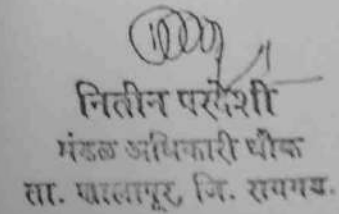 नितीन परदेशी
मंडळ अधिकारी चौक
ता. खालापूर, जि. रायगड.